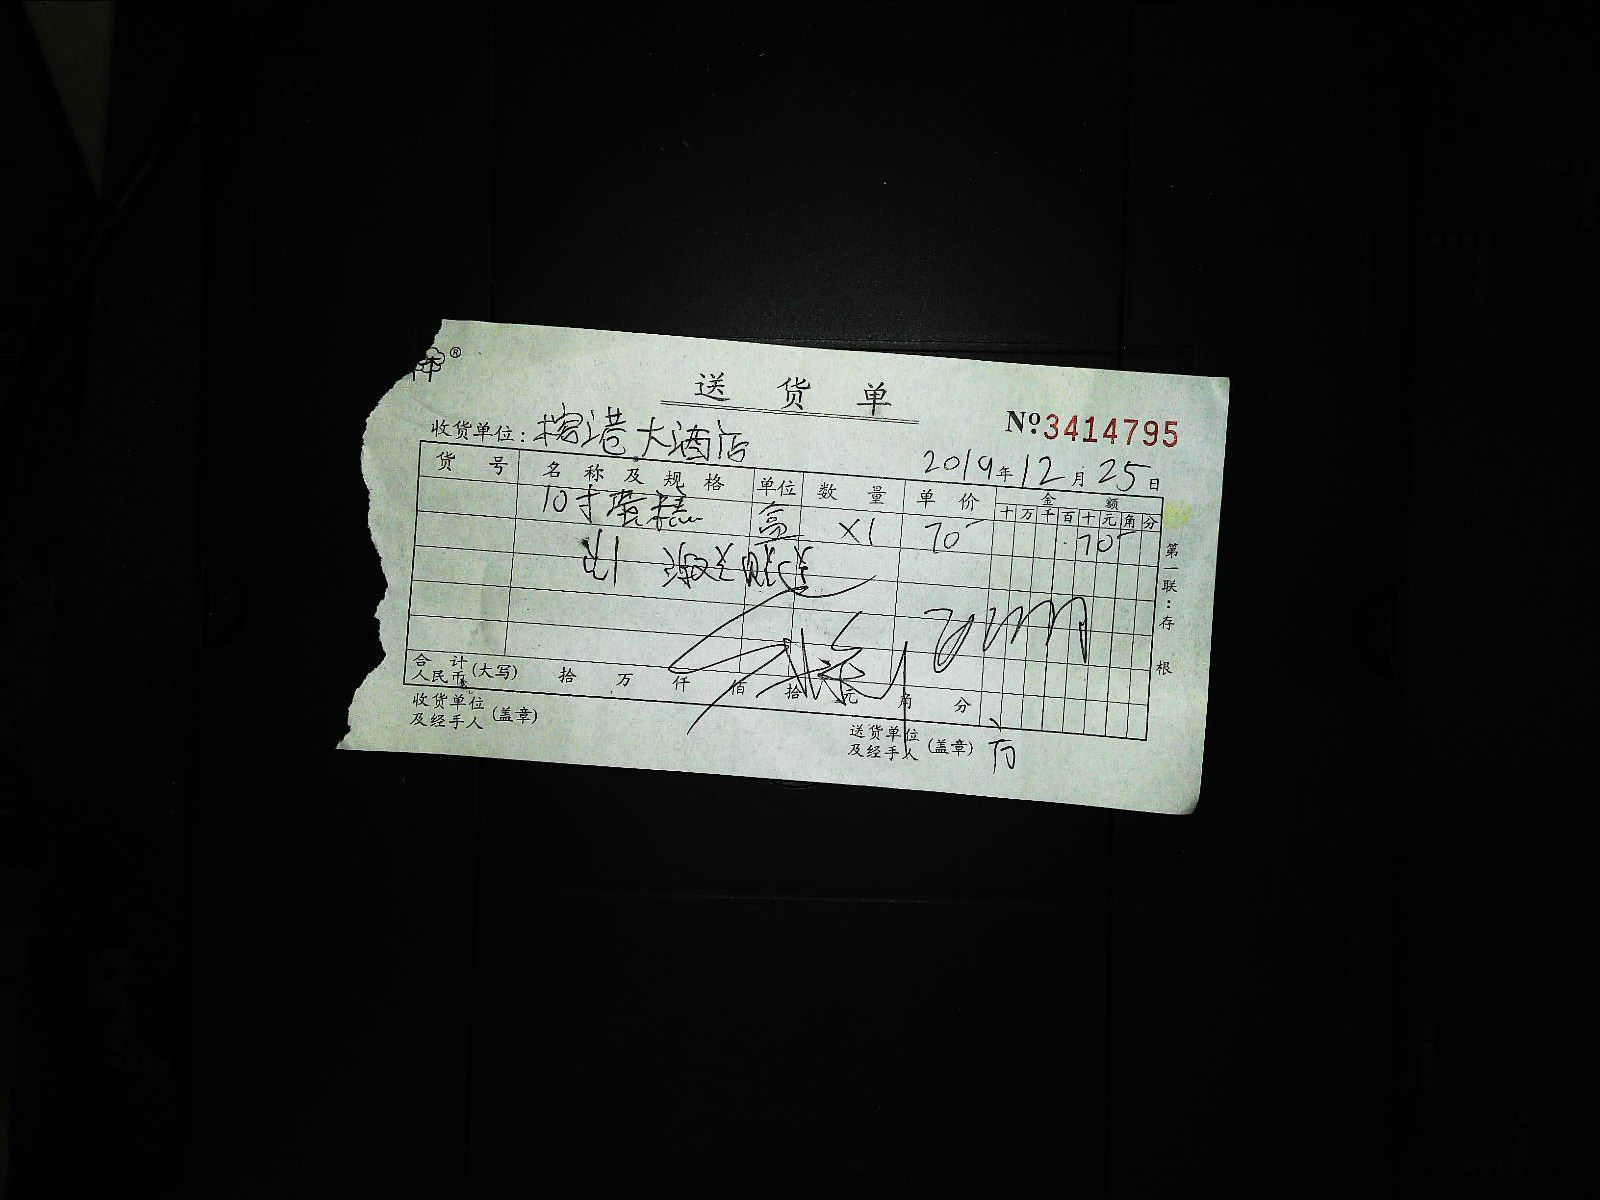 ®
送货单
№3414795
收货单位：榕港大酒店
2019年12月25日
货号 名称及规格 单位 数量 单价 金额
十万千百十元角分
10寸蛋糕 盒 X1 70 70
第一联：存根
合计人民币(大写) 拾 万 仟 佰 拾 元 角 分
收货单位及经手人(盖章)
送货单位及经手人(盖章) 方